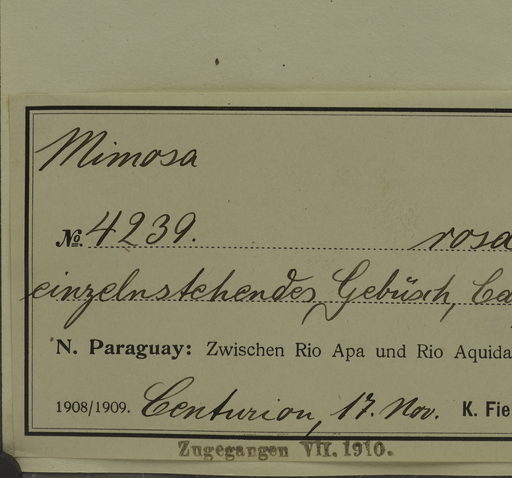 Mimosa
No. 4239. rosa
einzelnstehendes Gebüsch, Ca
N. Paraguay: Zwischen Rio Apa und Rio Aquida
1908/1909. Centurion, 17. Nov. K. Fie
Zugegangen VII. 1910.